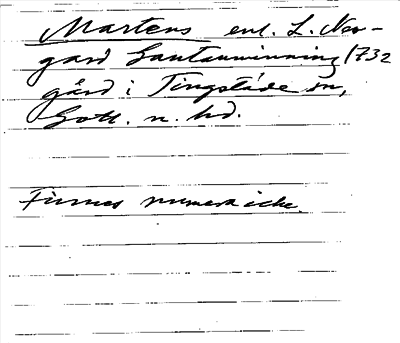 Martens enl. L. Ner-
gard Gautauminning 1732
gård i Tingstäde sn,
Gotl. n. hd.
Finnes numera icke.